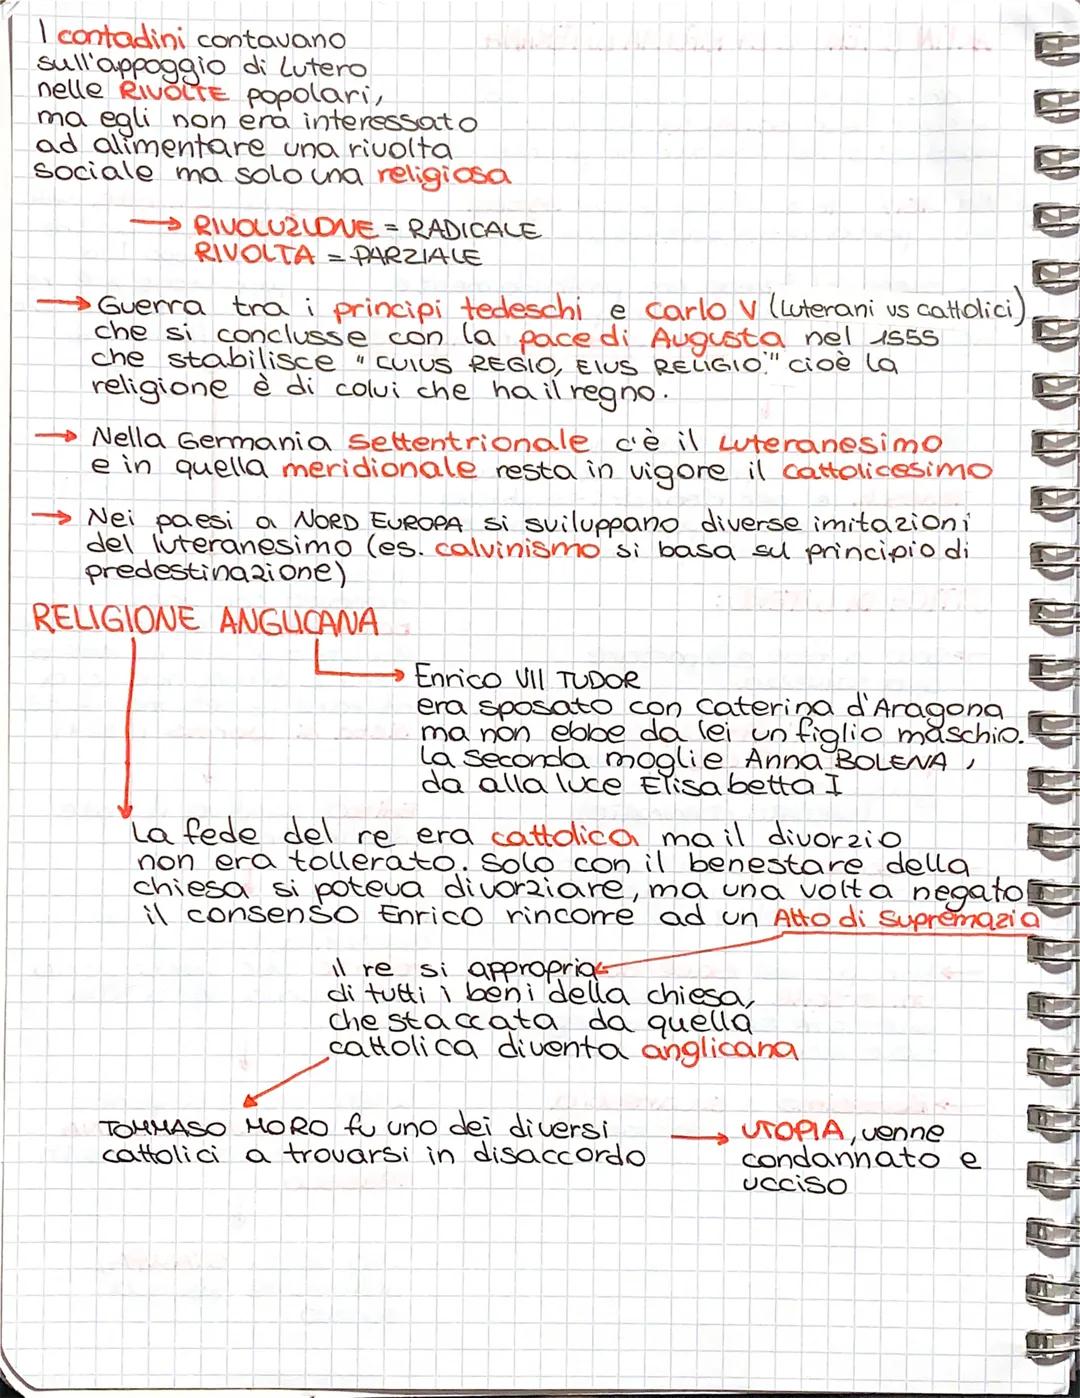 I contadini contavano
sull'appoggio di Lutero
nelle RIVOLTE popolari,
ma egli non era interessato
ad alimentare una rivolta
sociale ma solo una religiosa
→ RIVOLUZIONE = RADICALE
RIVOLTA = PARZIALE
→ Guerra tra i principi tedeschi e Carlo V (luterani vs cattolici)
che si conclusse con la pace di Augusta nel 1555
che stabilisce "CUIUS REGIO, EIUS RELIGIO." cioè la
religione è di colui che ha il regno.
→ Nella Germania settentrionale c'è il luteranesimo
e in quella meridionale resta in vigore il cattolicesimo
→ Nei paesi a NORD EUROPA si sviluppano diverse imitazioni
del luteranesimo (es. calvinismo si basa su principio di
predestinazione)
RELIGIONE ANGLICANA
Enrico VII TUDOR
era sposato con Caterina d'Aragona
ma non ebbe da lei un figlio maschio.
La seconda moglie Anna BOLENA,
da alla luce Elisabetta I
La fede del re era cattolica ma il divorzio
non era tollerato. Solo con il benestare della
chiesa si poteva divorziare, ma una volta negato
il consenso Enrico rincorre ad un Atto di Supremazia
il re si appropria
di tutti i beni della chiesa,
che staccata da quella
cattolica diventa anglicana
TOMMASO MORO fu uno dei diversi
cattolici a trovarsi in disaccordo
→ UTOPIA, venne
condannato e
ucciso